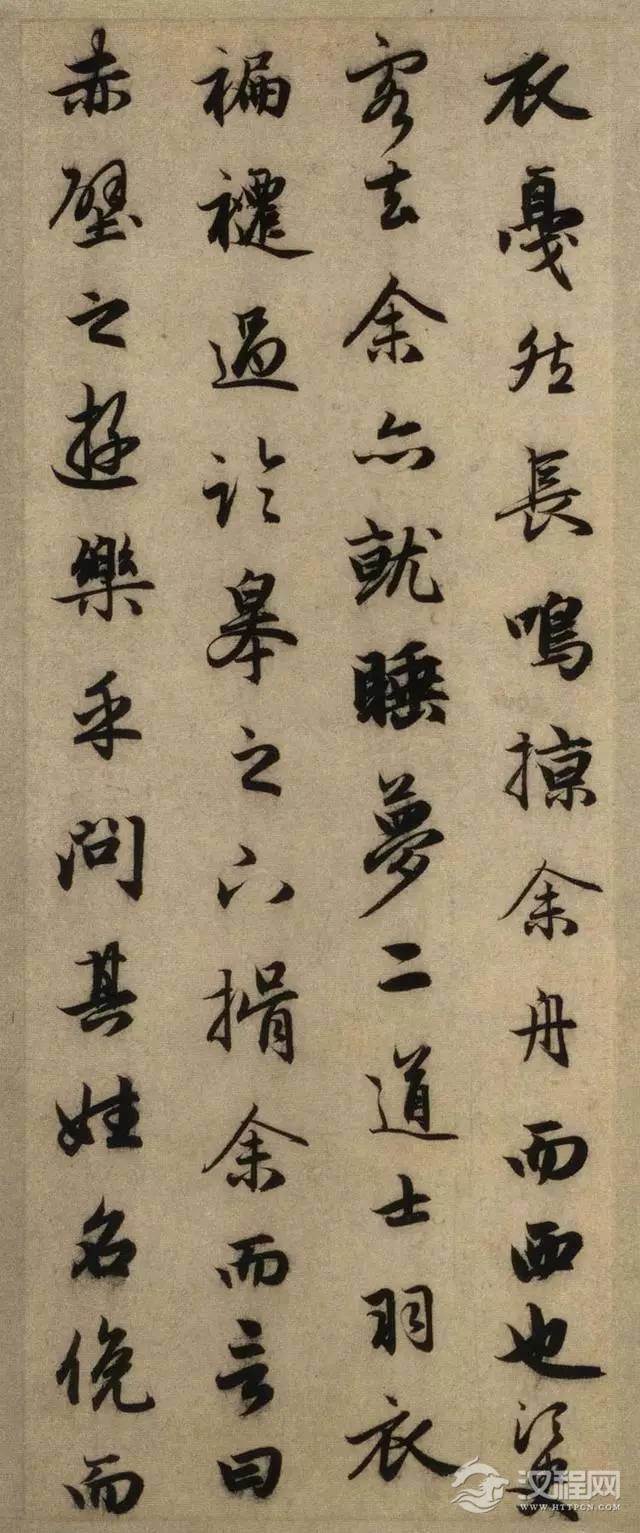 衣戛然長鳴掠余舟而西也須臾
客去余亦就睡夢二道士羽衣
褊褼過臨皋之下揖余而言曰
赤壁之遊樂乎問其姓名俛而
汉程网
WWW.HTTPCN.COM